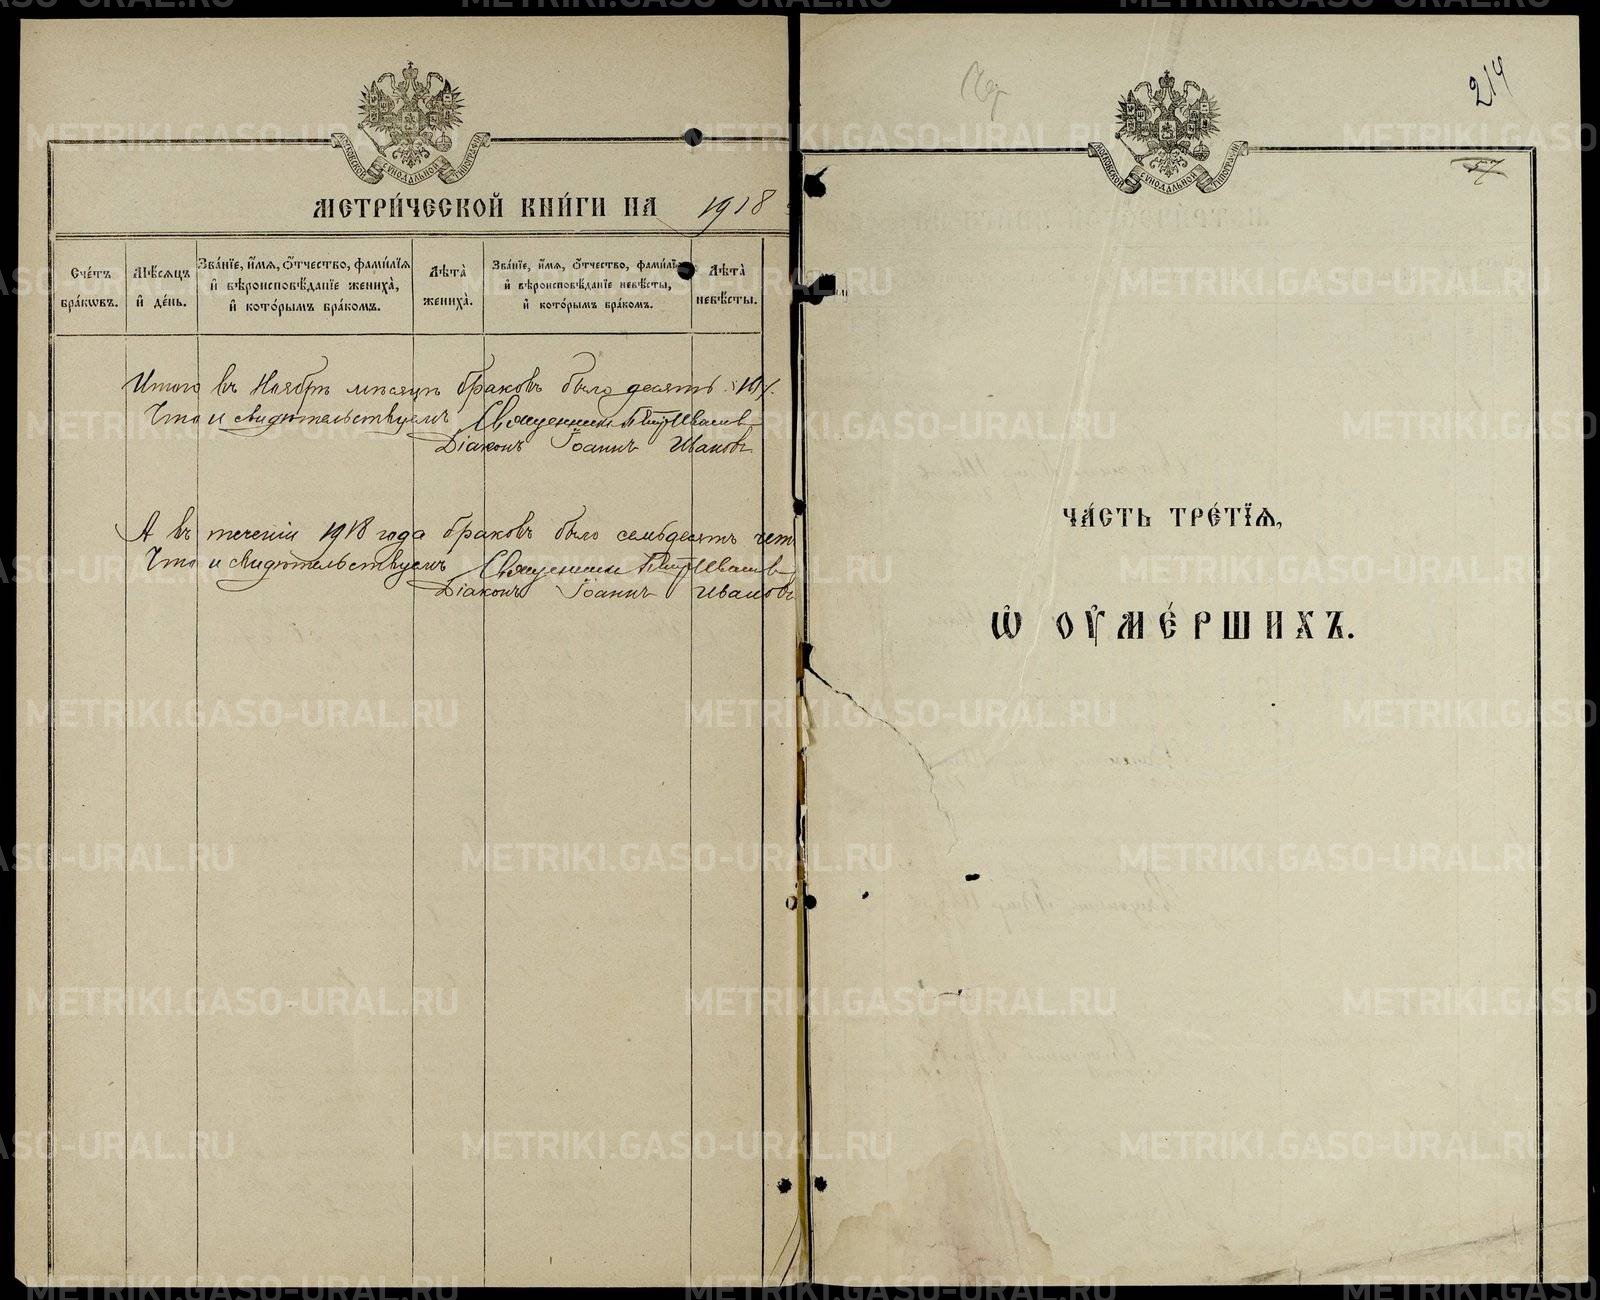 МОСКОВСКОЙ СѴНОДАЛЬНОЙ ТИПОГРАФІИ
МЕТРИ́ЧЕСКОЙ КНИ́ГИ НА 1918
Сче́тъ бра́кωвъ.
Мѣ́сяцъ и҆ де́нь.
Зва́нїе, и҆́мѧ, ѻ҆́тчество, фами́лїѧ и҆ вѣроисповѣ́данїе жениха̀, и҆ кото́рымъ бра́комъ.
Лѣта̀ жениха̀.
Зва́нїе, и҆́мѧ, ѻ҆́тчество, фами́лїѧ и҆ вѣроисповѣ́данїе невѣ́сты, и҆ кото́рымъ бра́комъ.
Лѣта̀ невѣ́сты.
Итого въ Ноябрѣ мѣсяцѣ браковъ было десять
Что и свидѣтельствуемъ Священникъ Петръ Ивановъ
Діаконъ Іоаннъ Ивановъ
А въ теченіи 1918 года браковъ было семьдесятъ чет
Что и свидѣтельствуемъ Священникъ Петръ Ивановъ
Діаконъ Іоаннъ Ивановъ
214
57
МОСКОВСКОЙ СѴНОДАЛЬНОЙ ТИПОГРАФІИ
ЧА́СТЬ ТРЕ́ТЇѦ,
Ѡ҆ ОУ҆МЕ́РШИХЪ.
METRIKI.GASO-URAL.RU